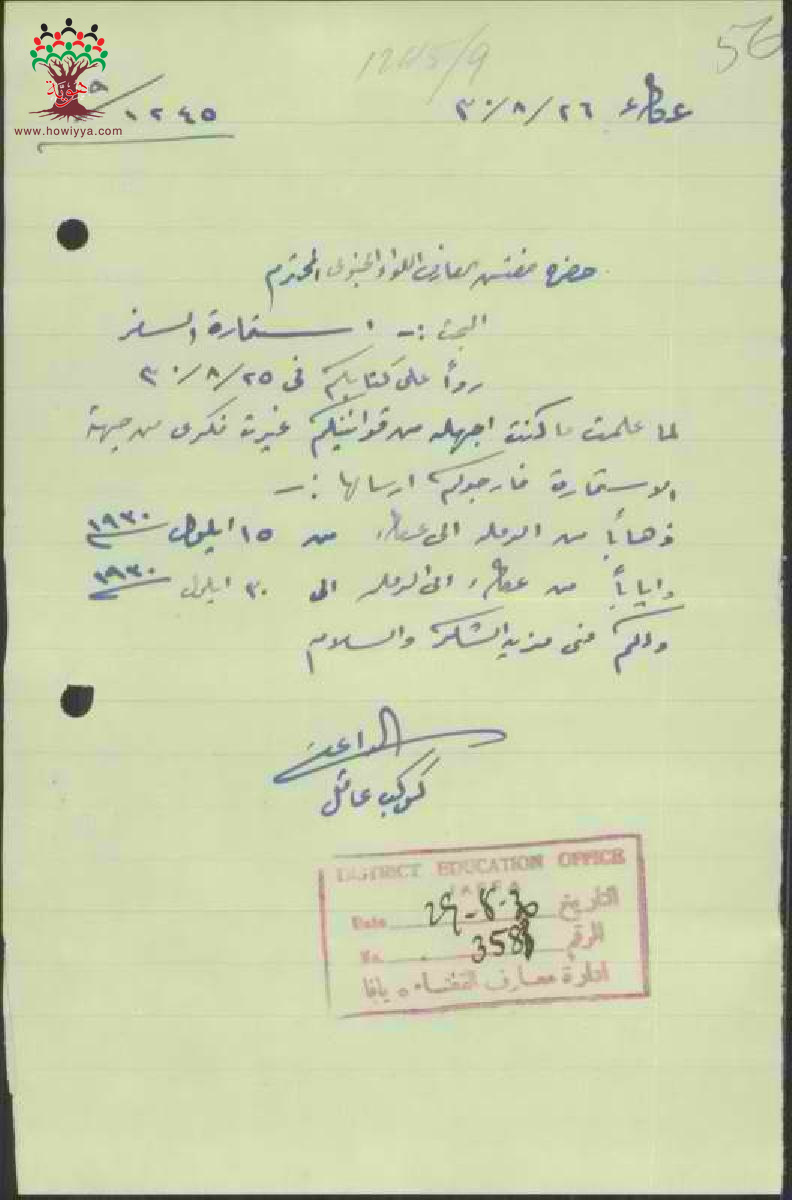 56
1245/9
هوية
www.howiyya.com
٩/١٢٤٥
عكاء ٢٦/٨/٣٠
حضرة مفتش معارف اللواء الجنوبي المحترم
البحث :- استمارة السفر
رداً على كتابكم في ٢٥/٨/٣٠
لما علمت ما كنت اجهله من قوانينكم غيرت فكري من جهة
الاستمارة فارجوكم ارسالها :-
ذهاباً من الرمله الى عكاء من ١٥ ايلول ١٩٣٠
واياباً من عكاء الى الرمله الى ٣٠ ايلول ١٩٣٠
ولكم مني مزيد الشكر والسلام
الداعية
كوكب عاقل
DISTRICT EDUCATION OFFICE
JAFFA
Date 29-8-30 التاريخ
No. 3588 الرقم
ادارة معارف القضاء يافا